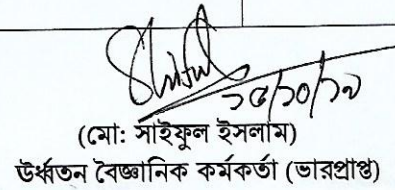 ১৫/১০/১৯
(মো: সাইফুল ইসলাম)
উর্ধ্বতন বৈজ্ঞানিক কর্মকর্তা (ভারপ্রাপ্ত)